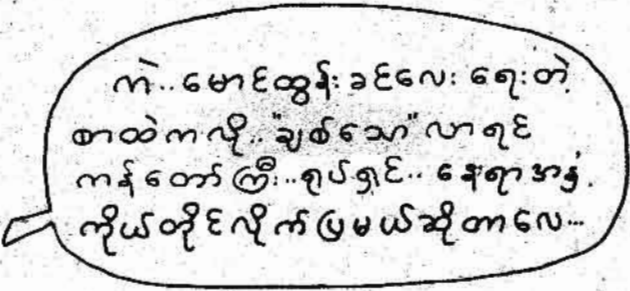 ကဲ.. မောင်ထွန်း ခင်လေး ရေးတဲ့
စာထဲကလို.. "ချစ်သော" လာရင်
ကန်တော်ကြီး.. ရုပ်ရှင်.. နေရာအနှံ့
ကိုယ်တိုင်လိုက်ပြမယ်ဆိုတာလေ...